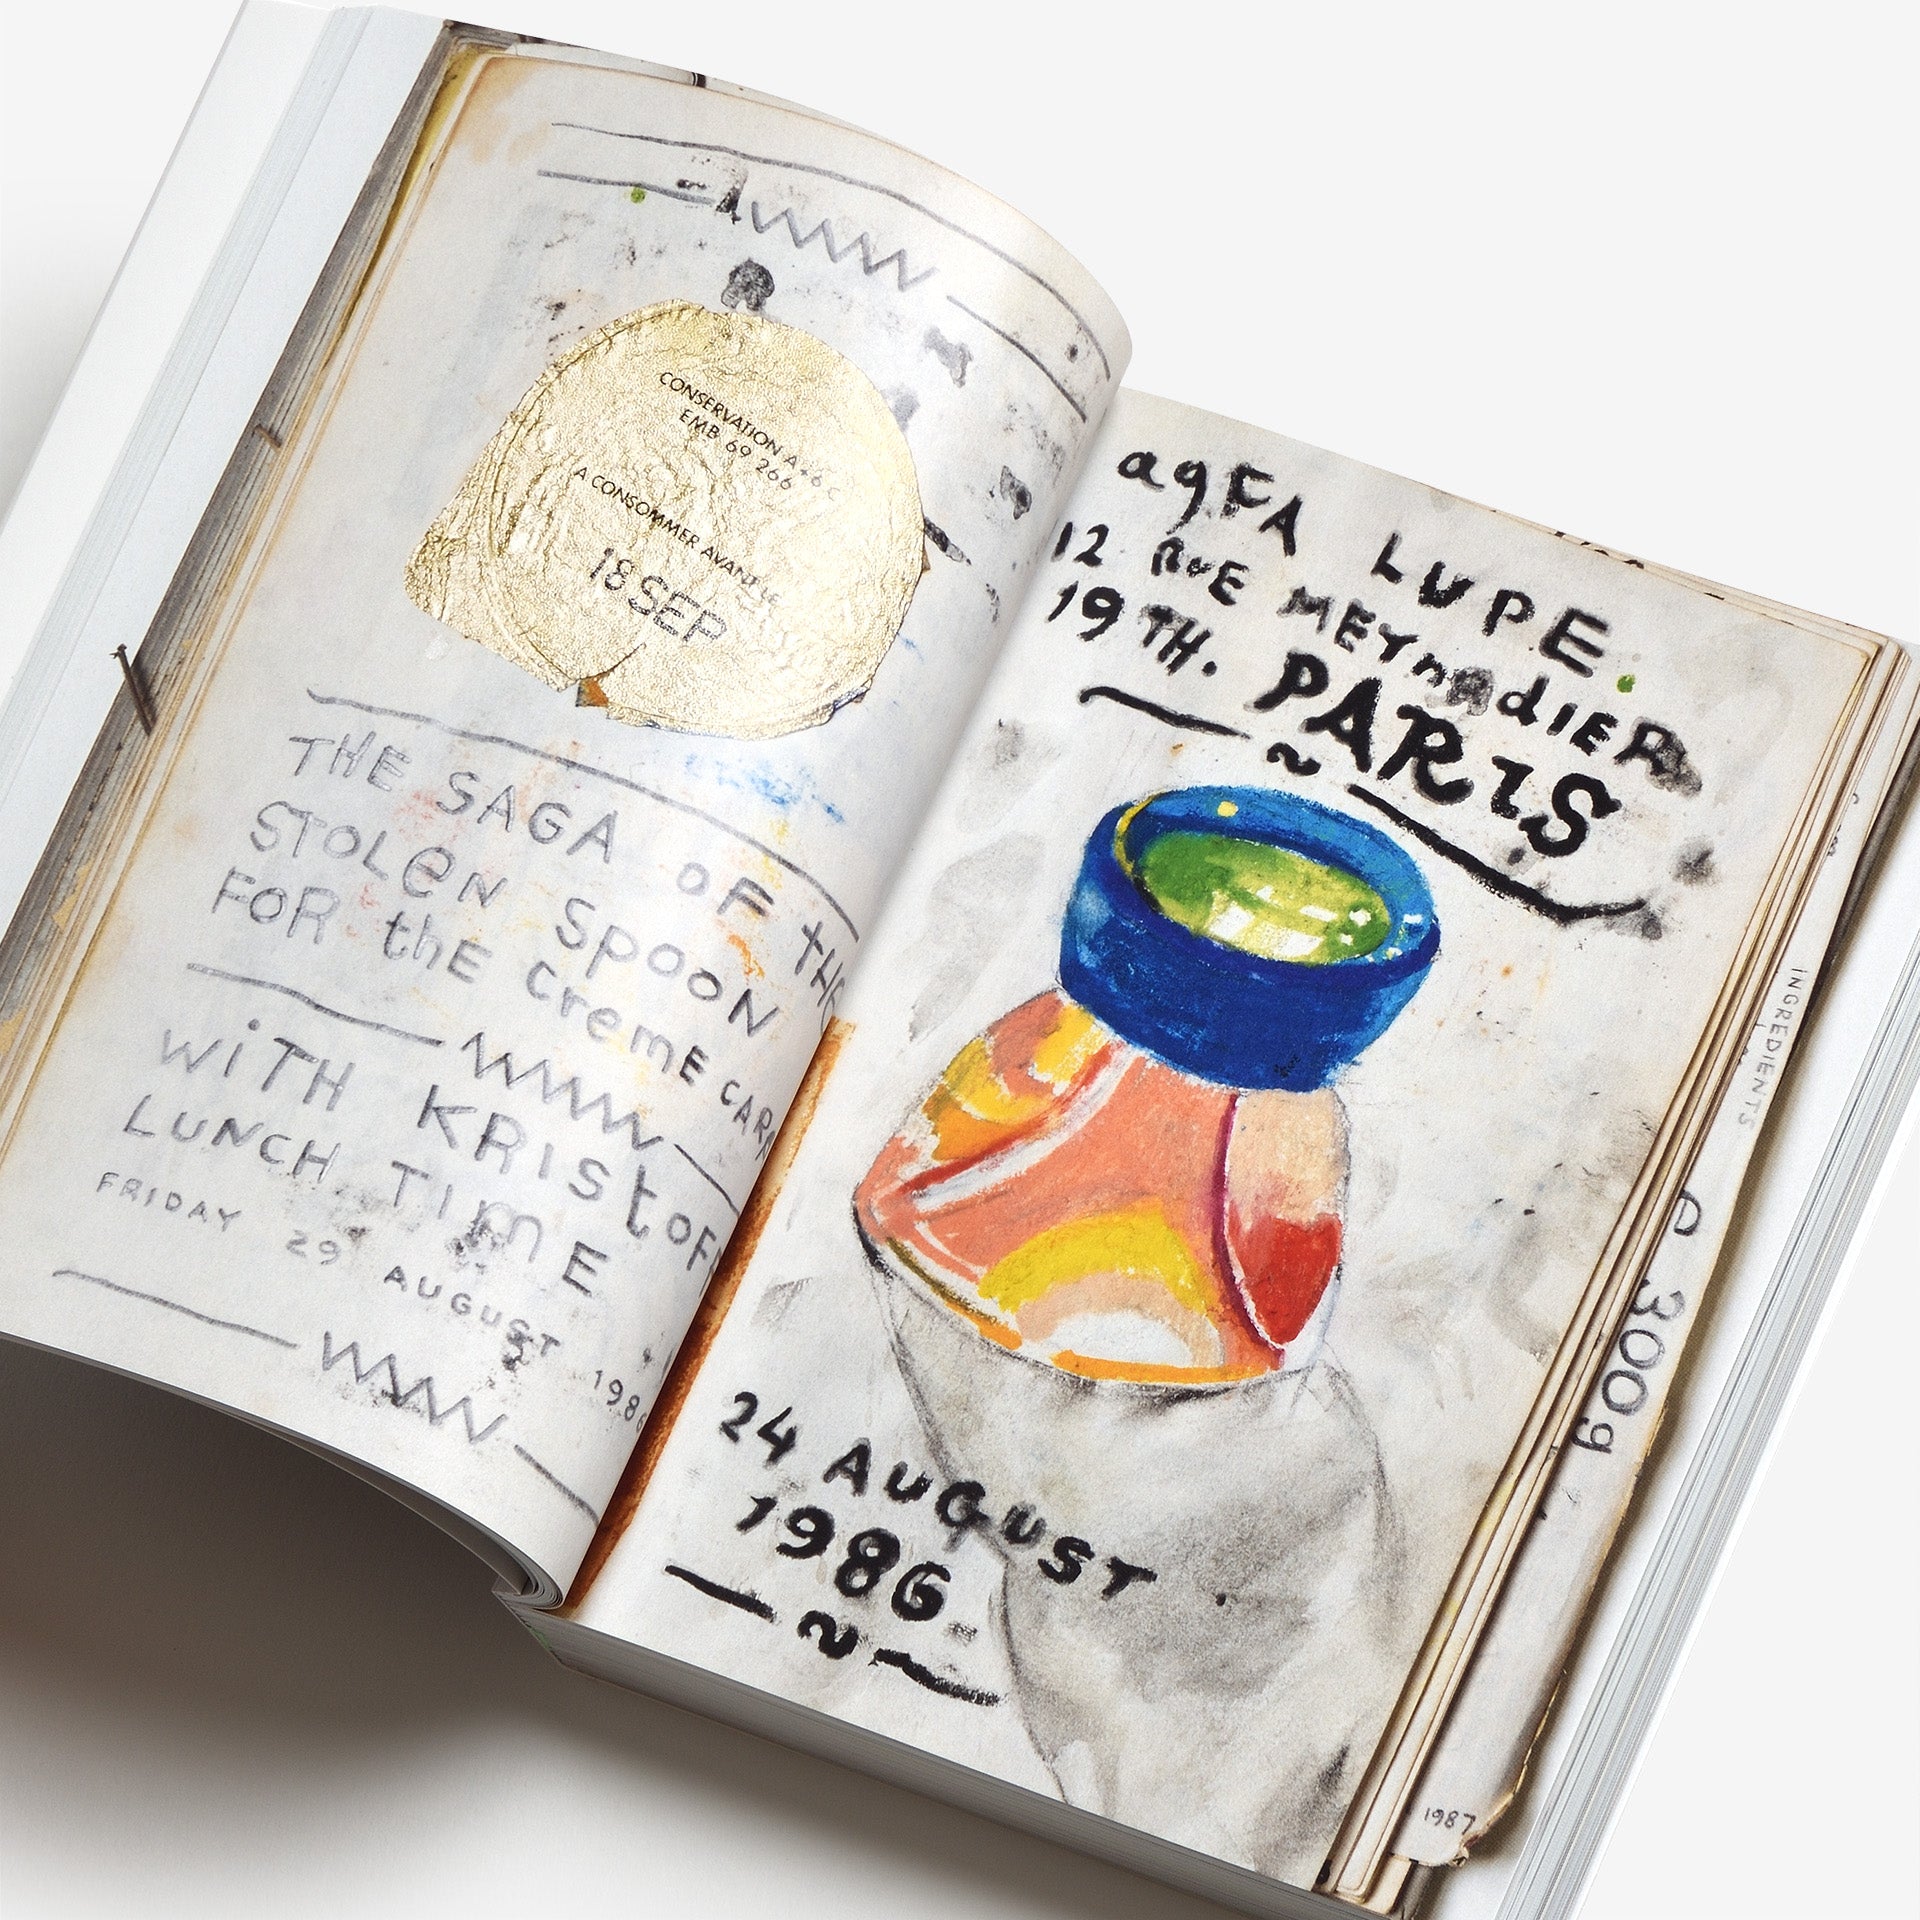 CONSERVATION A+6 C
EMB 69 266
A CONSOMMER AVANT LE
18 SEP
THE SAGA OF THE
STOLEN SPOON
FOR thE CremE
WiTH KRIStOF
LUNCH TimE
FRIDAY 29 AUGUST 1986
agFA LUPE.
12 RUE MEYnAdIER
19TH. PARIS
24 AUGUST
1986
INGREDIENTS
300g
1987